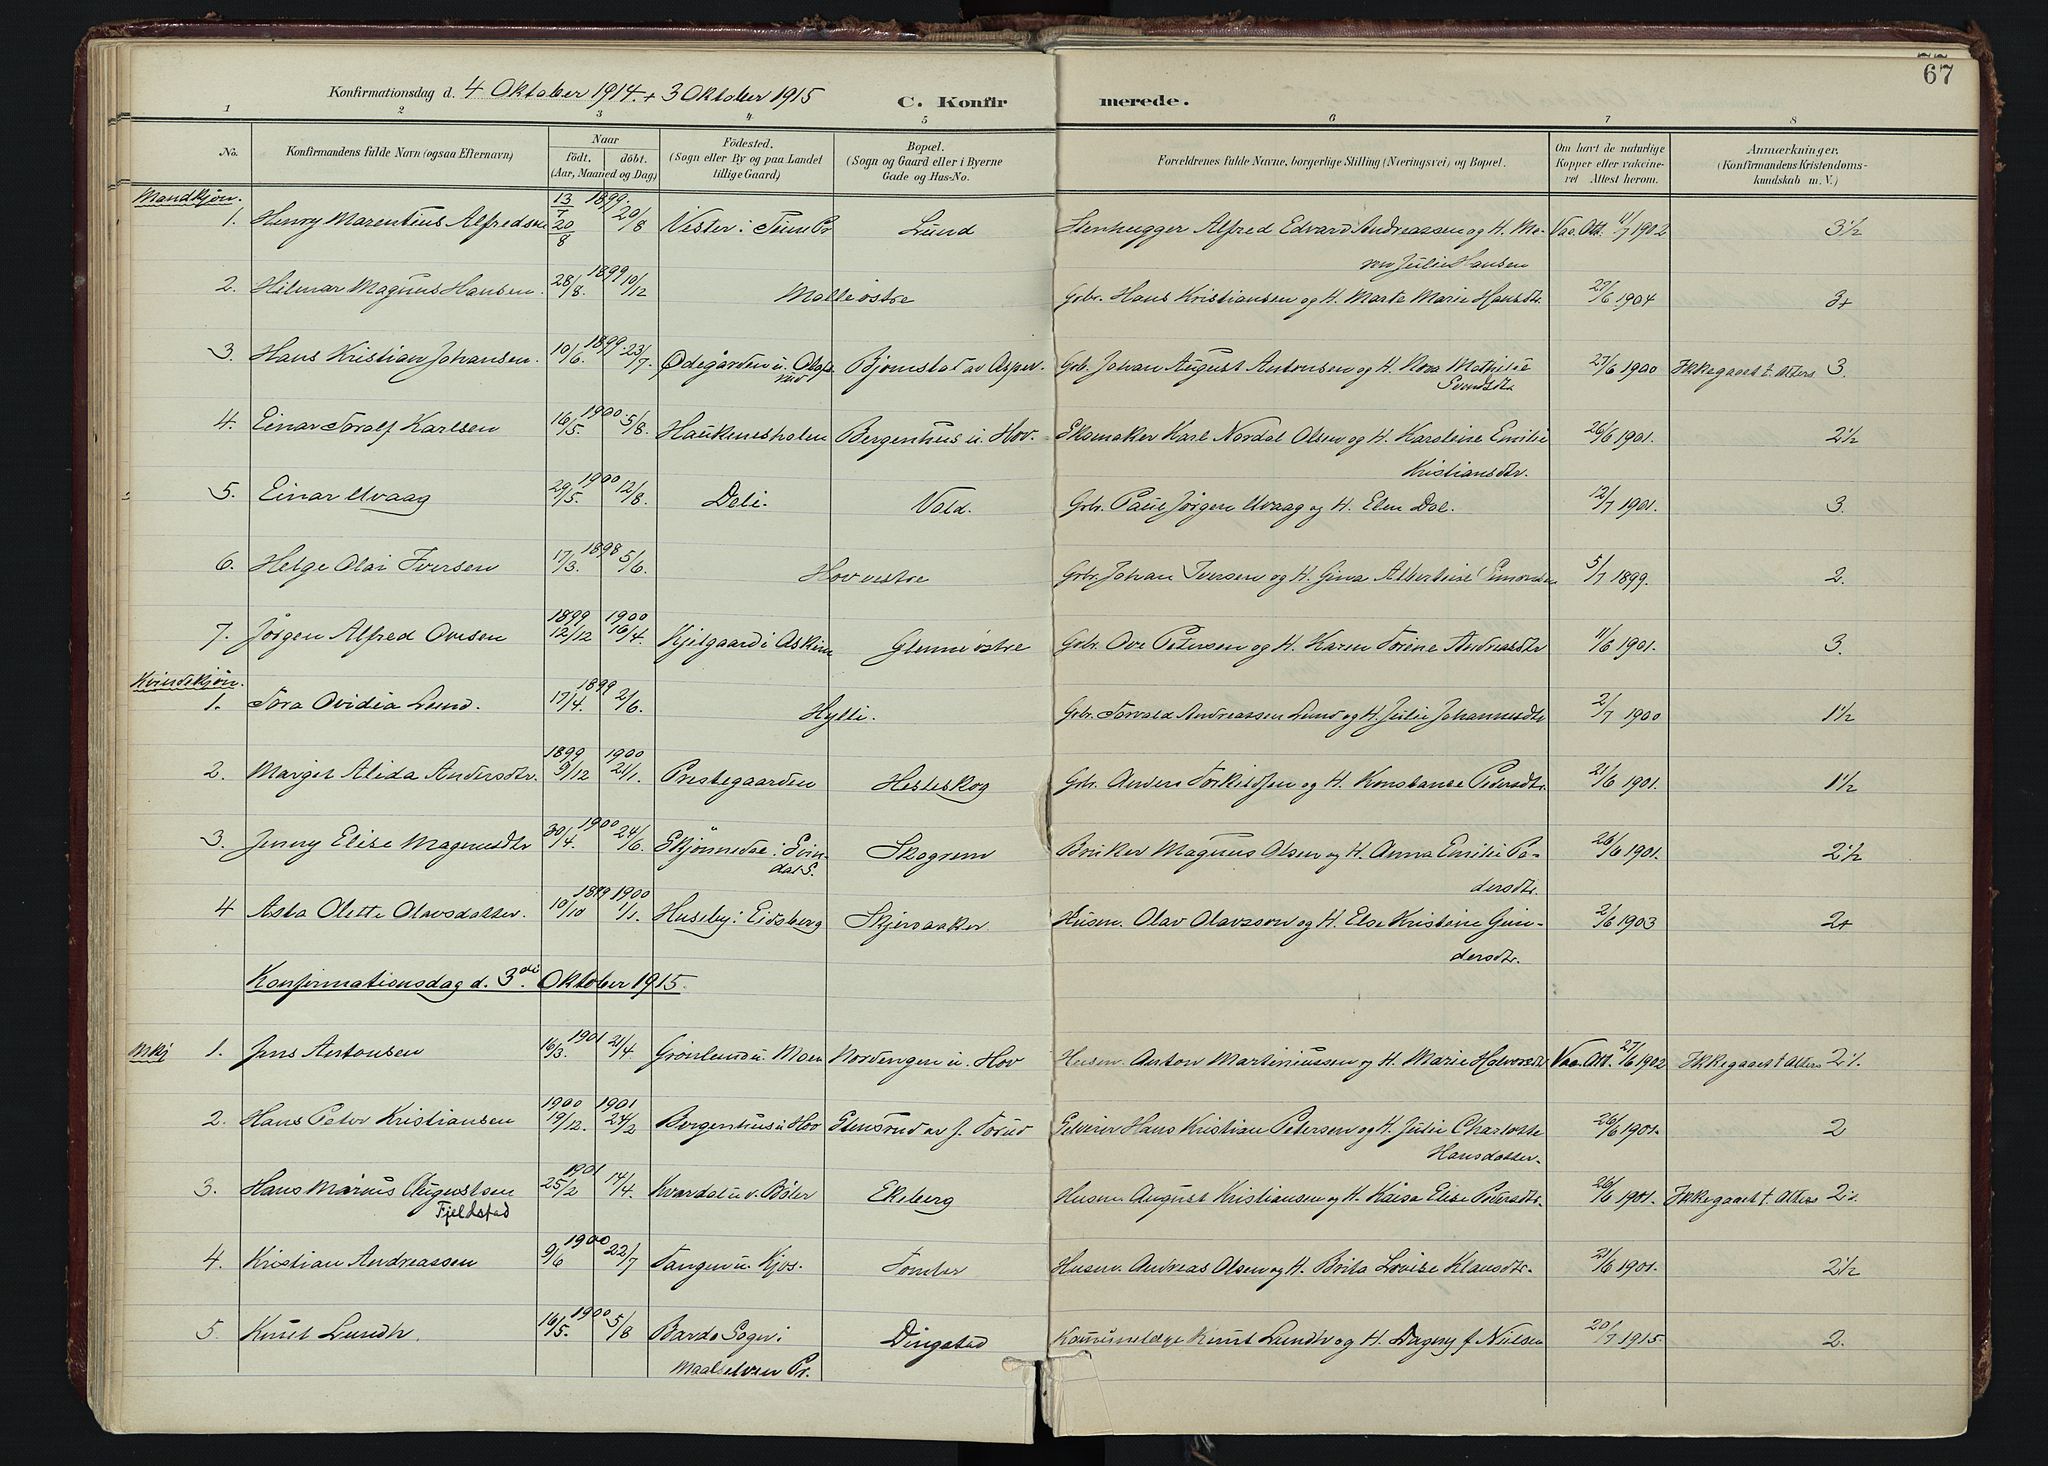 67
Konfirmationsdag d. 4 Oktober 1914. + 3 Oktober 1915 C. Konfirmerede.
1 2 3 4 5 6 7 8
No. Konfirmandens fulde Navn (ogsaa Efternavn) Naar født. døbt. (Aar, Maaned og Dag) Fødested. (Sogn eller By og paa Landet tillige Gaard) Bopæl. (Sogn og Gaard eller i Byerne Gade og Hus-No. Forældrenes fulde Navne, borgerlige Stilling (Næringsvei) og Bopæl. Om havt de naturlige Kopper eller vakcineret Attest herom. Anmærkninger. (Konfirmandens Kristendomskundskab m. V.)
Mandkjøn.
1. Henry Marentius Alfredsen 13/7 20/8 1899. 20/8 Vester i Lund Stenhugger Alfred Edvard Andreassen og H. Ma- Vac. Att. 11/7 1902 3 1/2
ren Julie Hansen
2. Hilmar Magnus Hansen. 28/8. 1899 10/12 Molle østre Gbr. Hans Kristiansen og H. Marte Marie Hansdtr. 27/6 1904 3+
3. Hans Kristian Johansen. 10/6. 1899. 23/7. Ødegården u. Olafs-rud Bjørnstat av Asper. Gbr. Johan August Antonsen og H. Mathilie 27/6 1900 Ikke gaaet t. Alters 3.
4. Einar Toralf Karlsen 16/5. 1900. 5/8. Haukenesholen Bergenhus u. Hov. Skomaker Karl Nordal Olsen og H. Karoline Emilie 26/6 1901. 2 1/2
Kristiansdtr.
5. Einar Uvaag 29/5. 1900 12/8. Deli. Vald. Gbr. Paul Jørgen Uvaag og H. Elen Dal. 12/7 1901. 3.
6. Helge Olai Iversen 17/3. 1898 5/6. Hov vestre Gbr. Johan Iversen og H. Gina Albertine Simonsen 5/7 1899. 2.
7. Jørgen Alfred Ovesen 1899 12/12 1900 16/4. Kjelgaard i Askim Glenne østre Gbr. Ove Petersen og H. Karen Torine Andreasdtr 11/6 1901. 3.
Kvindekjøn.
1. Tora Ovidia Lund. 17/4. 1899 2/6. Hylli. Gbr. Torvald Andreassen Lund og H. Julie Johannesdtr 2/7 1900 1 1/2
2. Margit Alida Andersdtr. 1899 9/12 1900 21/1. Prestegaarden Hesteskog Gbr. Anders Torkildsen og H. Konstanse Pedersdtr. 21/6 1901. 1 1/2
3. Jenny Elise Magnusdtr 30/4. 1900 24/6. Skjønnedal i Svin-dal S. Skogrem Bruker Magnus Olsen og H. Anna Emilie Pe- 26/6 1901. 2 1/2
dersdtr.
4 Asta Olette Olavsdatter. 10/10 1899 1900 1/1. Huseby i Eidsberg Skjersaaker Husm. Olav Olavsson og H. Else Kristine Gun- 2/6 1903 2+
dersdtr.
Konfirmationsdag d. 3die Oktober 1915.
Mkj 1. Jens Antonsen 16/3. 1901 21/4. Grønlund u. Moen Nordengen u. Hov Husm. Anton Martiniussen og H. Marie Halvorsdtr Vac. Att. 27/6 1902 Ikke gaaet t. Alters 2 1/2.
2. Hans Peter Kristiansen 1900 19/12. 1901 24/2 Bergenhus u Hov Stensrud av J. Torud Hans Kristian Petersen og H. Julie Charlotte 26/6 1901. 2
Hansdatter.
3. Hans Marius Augustsen 25/2 1901 14/4. Kvardal u v. Bøler Ekeberg Husm. August Kristiansen og H. Kaisa Elise Pedersdtr. 26/6 1901. Ikke gaaet t. Alters 2 1/2.
Fjeldstad
4. Kristian Andreassen 9/6 1900 22/7 Tangen u. Kjos. Tomter Husm. Andreas Olsen og H. Brita Lovise Klausdtr. 21/6 1901. 2 1/2
5. Knut Lundh. 16/5. 1900 5/8 Bardo Sogn i Dingstad Knut Lundh og H. Dagny f. Nielsen 20/7 1915. 2.
Maalselven Pr.